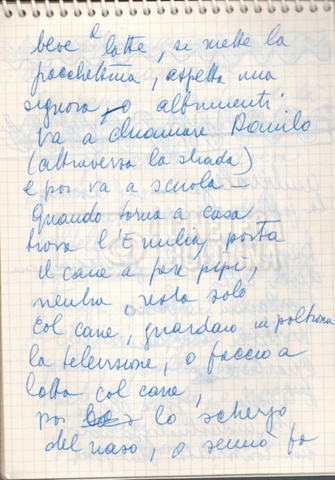 beve il latte, si mette la
pacchettina, aspetta una
signora, o altrimenti
va a chiamare Danilo
(attraversa la strada)
e poi va a scuola –
Quando torna a casa
trova l'Emilia, porta
il cane a fare pipì,
rientra, resta solo
col cane, guardano in poltrona
la televisione, o faccio a
lotta col cane,
poi lo scherzo
del naso, o sennò fa